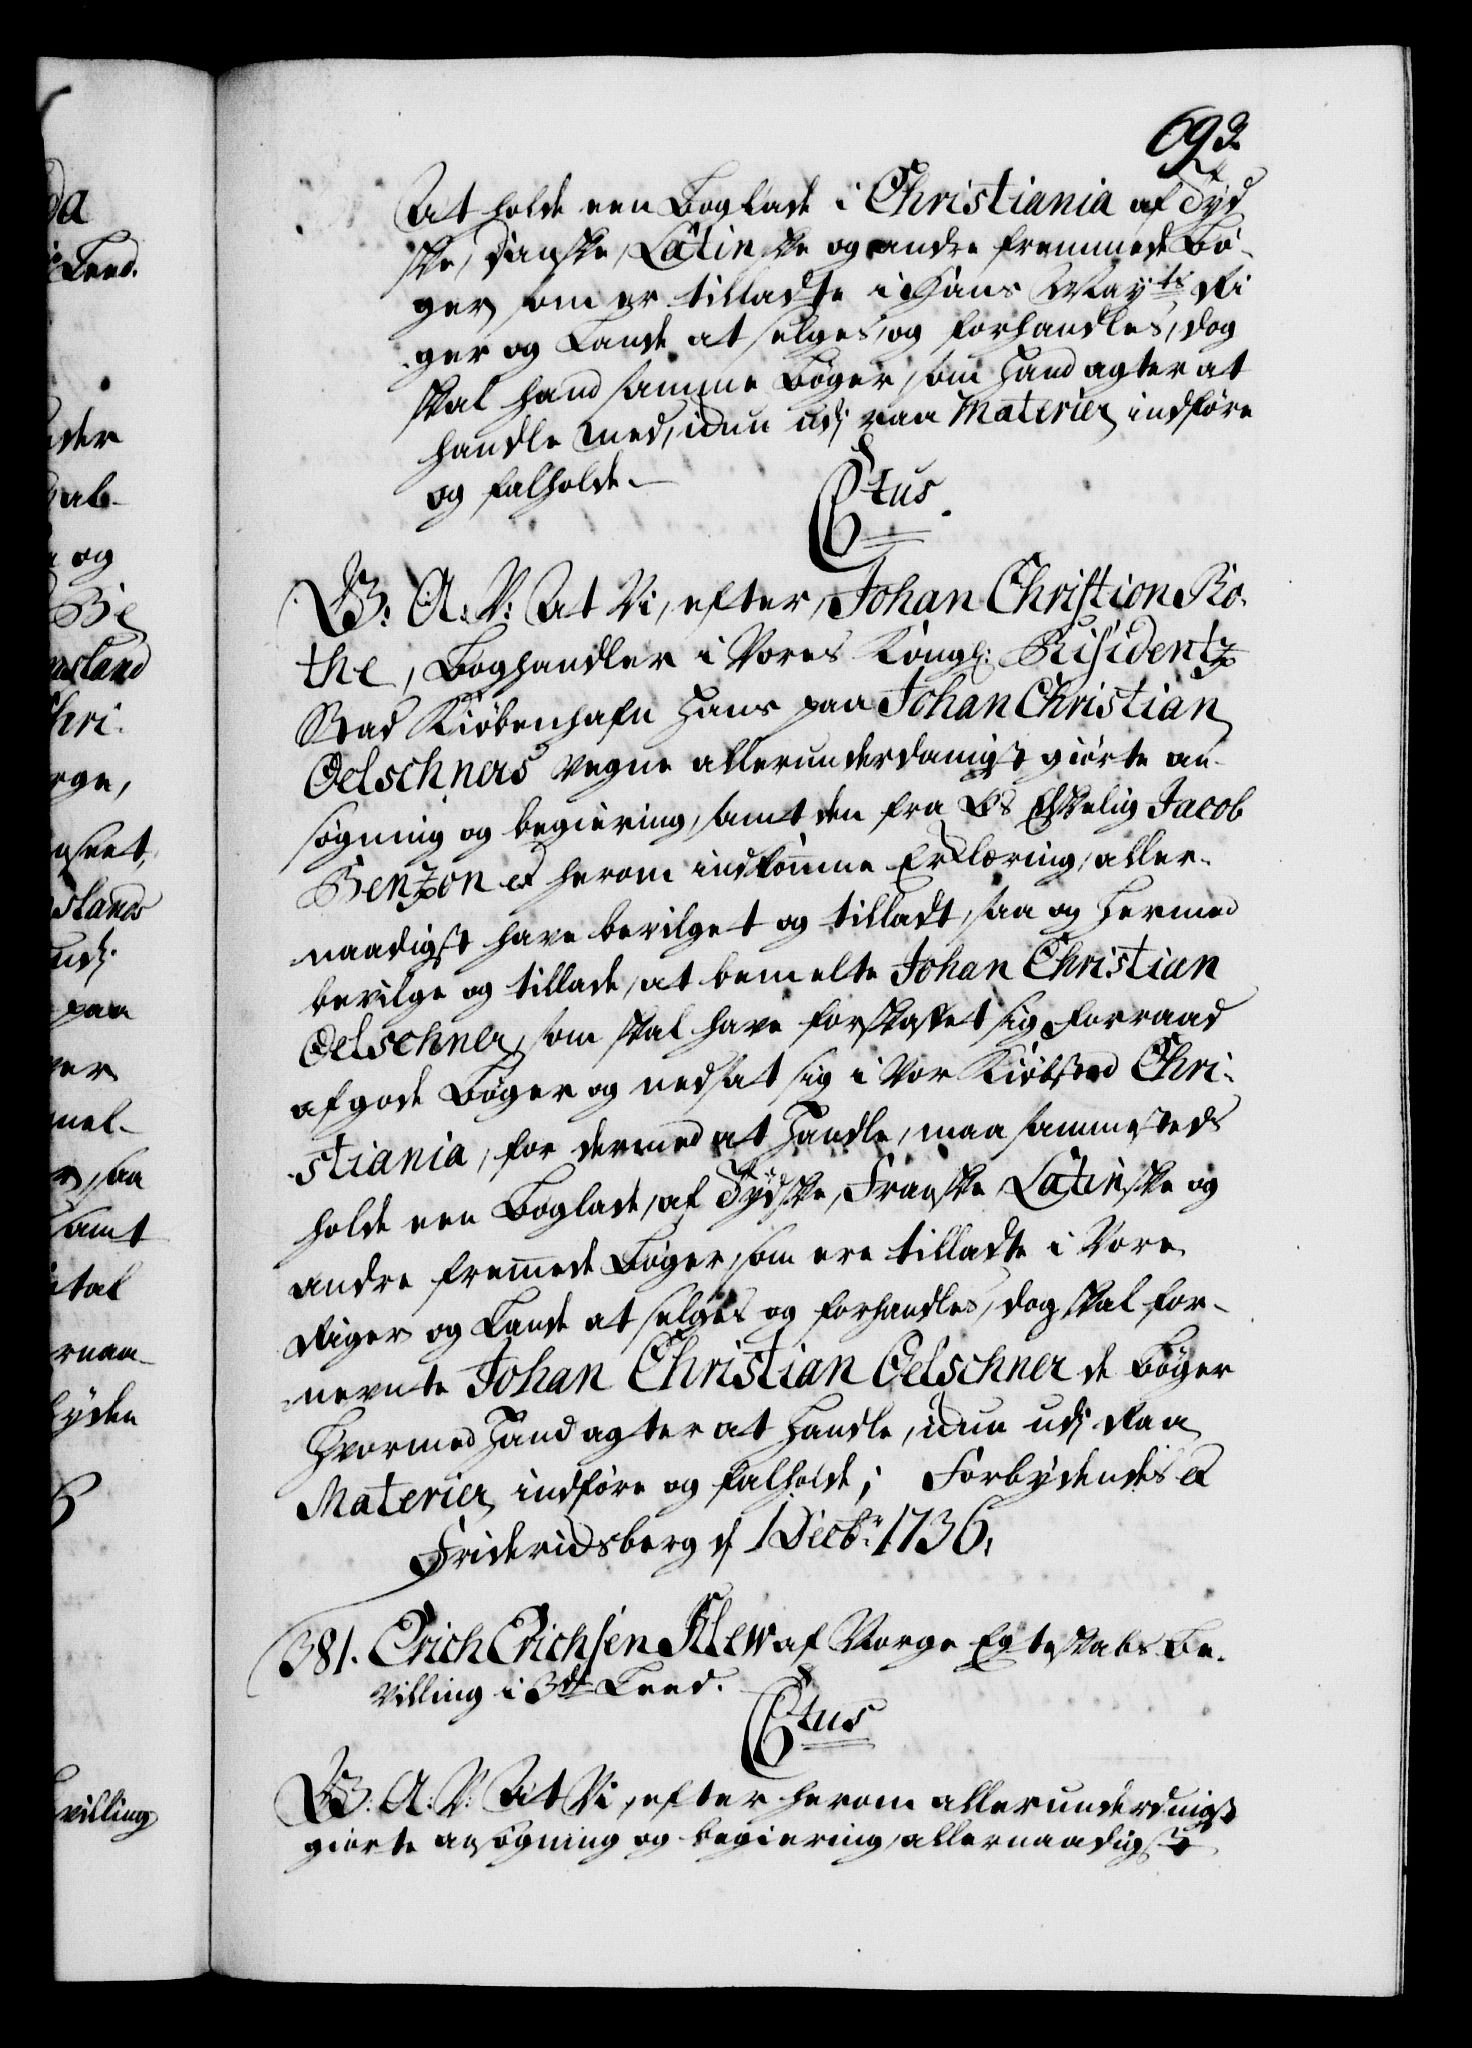 693.
At holde een Boglade i Christiania af Tyd
ske, Danske, Latinske og andre fremmede Bø-
ger, som er tilladte i Hans Mayts Ri
ger og Lande at selges og forhandles, dog
skal hand samme Bøger, som Hand agter at
handle med, icun udj raa Materier indføre
og falholde.
C6tus.
G: A: V: At Vi, efter Johan Christion Ro-
the, Boghandler i Vores Kongl: Residentz
Stad Kiøbenhafn Hans paa Johan Christian
Oelschners vegne allerunderdanigst giørte an-
søgning og begiering, samt den fra Os Elskelig Jacob
Benzon & herom indkomne Erklæring, aller-
naadigst have bevilget og tilladt, saa og Hermed
bevilge og tillade, at bemelte Johan Christian
Oelschner, som skal have forskaffet sig Forraad
af gode Bøger og nedsat sig i Vor Kiøbsted Chri-
stiania, for dermed at Handle, maa sammesteds
holde een Boglade, af Tydske, Franske Latinske og
andre fremmede Bøger, som ere tilladte i Vore
Riger og Lande at selges og forhandles, dog skal for-
nevnte Johan Christian Oelschner de Bøger
Hvormed Hand agter at Handle, icun udj Raa
Materier indføre og falholde; Forbydendes &
Friderichsberg d 1 Decbr: 1736.
381. Erich Erichsen Klew af Norge Egteskabs Be-
Villing i 3die Leed.
Ctus
G: A: V: At Vi, efter herom allerunderdnigst
giorte ansøgning og begiering, allernaadigst
da
Leed.
og
Be
sland
Chri-
rge,
slands
udj
paa
ver
mel-
saa
samt
tal
yden
villing